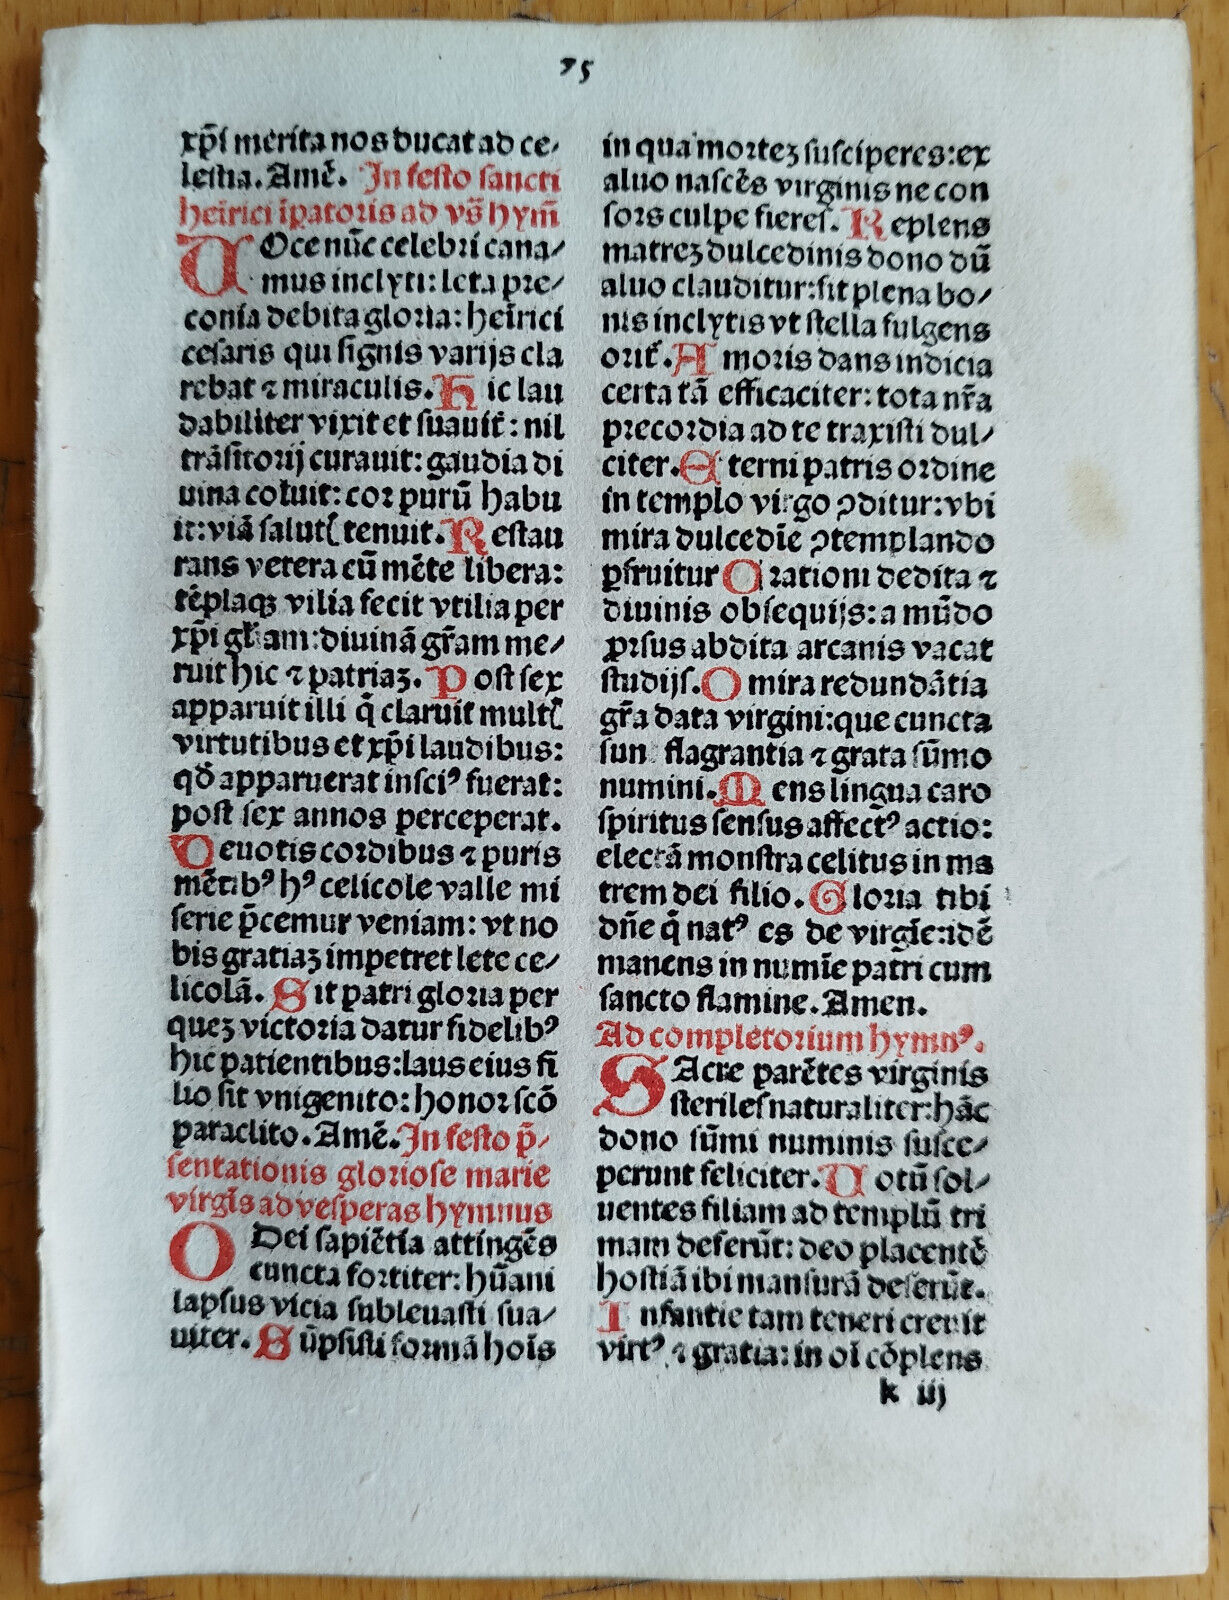 75
xp̄i merita nos ducat ad ce⸗
lestia. Amē. In festo sancti
heīrici īpatoris ad vs̄ hym̄
UOce nūc celebri cana⸗
mus inclyti: leta pre⸗
conia debita gloria: heīrici
cesaris qui signis varijs cla
rebat ⁊ miraculis. Hic lau
dabiliter vixit et suauit᷑: nil
trāsitorij curauit: gaudia di
uina coluit: cor purū habu
it: viā salutꝭ tenuit. Restau
rans vetera cū mēte libera:
tēplaqꝫ vilia fecit vtilia per
xp̄i gl̄iam: diuinā gr̄am me⸗
ruit hic ⁊ patriaꝫ. Post sex
apparuit illi q̄ claruit multꝭ
virtutibus et xp̄i laudibus:
qd̄ apparuerat insciꝰ fuerat:
post sex annos perceperat.
Deuotis cordibus ⁊ puris
mētibꝰ hꝰ celicole valle mi
serie p̄cemur veniam: vt no
bis gratiaꝫ impetret lete ce⸗
licolā. Sit patri gloria per
queꝫ victoria datur fidelibꝰ
hic patientibus: laus eius fi
lio sit vnigenito: honor scō
paraclito. Amē. In festo p̄⸗
sentationis gloriose marie
virgīs ad vesperas hymnus
O Dei sapiētia attingēs
cuncta fortiter: hūani
lapsus vicia subleuasti sua⸗
uiter. Sūpsisti formā hoīs
in qua morteꝫ susciperes: ex
aluo nascēs virginis ne con
sors culpe fieres. Replens
matreꝫ dulcedinis dono dū
aluo clauditur: fit plena bo⸗
nis inclytis vt stella fulgens
orit᷑. Amoris dans indicia
certa tā efficaciter: tota nr̄a
precordia ad te traxisti dul⸗
citer. Eterni patris ordine
in templo virgo ꝯditur: vbi
mira dulcedīe ꝯtemplando
ꝑfruitur Orationi dedita ⁊
diuinis obsequijs: a mūdo
ꝓrsus abdita arcanis vacat
studijs. O mira redundātia
gr̄a data virgini: que cuncta
sun flagrantia ⁊ grata sūmo
numini. Mens lingua caro
spiritus sensus affectꝰ actio:
electā monstra celitus in ma
trem dei filio. Gloria tibi
dn̄e q̄ natꝰ es de virgīe: idē
manens in numīe patri cum
sancto flamine. Amen.
Ad completorium hymnꝰ.
SAcre parētes virginis
steriles naturaliter: hāc
dono sūmi numinis susce⸗
perunt feliciter. Uotū sol⸗
uentes filiam ad templū tri
mam deferūt: deo placentē
hostiā ibi mansurā deserūt.
Infantie tam teneri creuit
virtꝰ ⁊ gratia: in oī cōplens
k iij